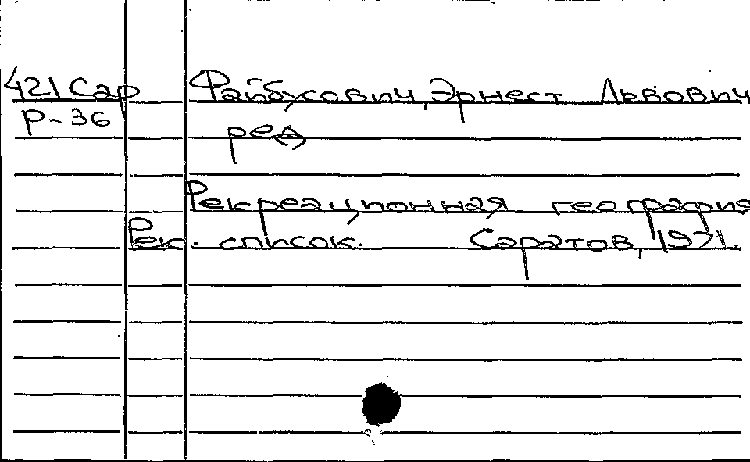 421 Сар Файбусович, Эрнест Львович
Р-36
ред
Рекреационная география
Рек. список. Саратов, 1971.